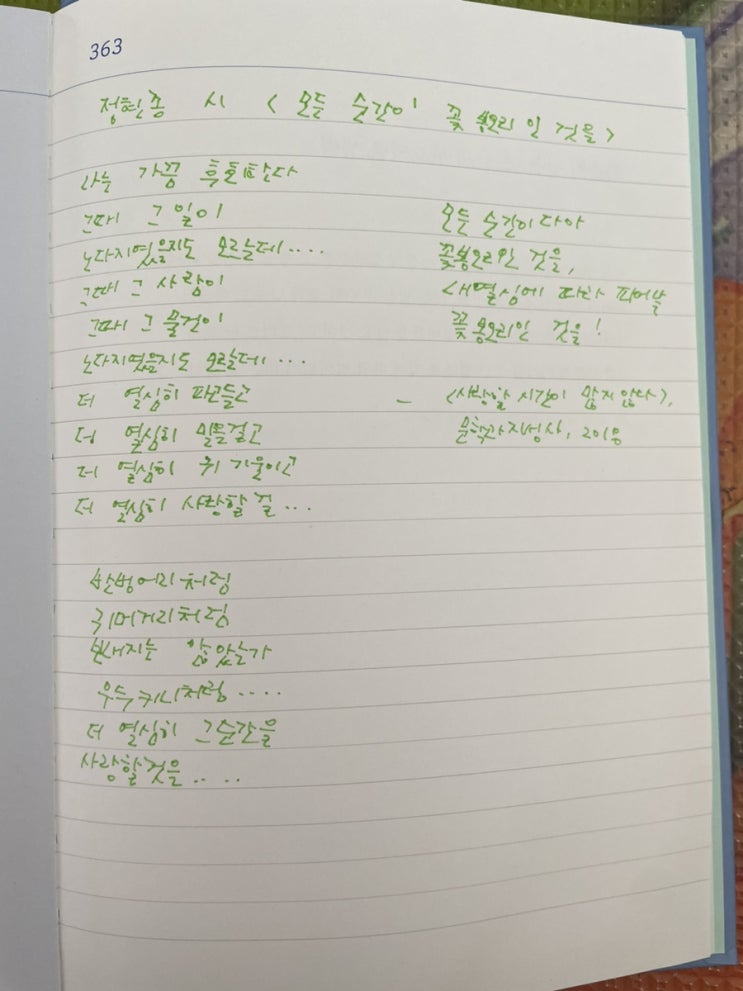 363
정현종 시 <모든 순간이 꽃봉오리인 것을>
나는 가끔 후회한다
그때 그 일이
노다지였을지도 모르는데....
그때 그 사람이
그때 그 물건이
노다지였을지도 모르는데...
더 열심히 파고들고
더 열심히 말을걸고
더 열심히 귀 기울이고
더 열심히 사랑할 걸...
반벙어리처럼
귀머거리처럼
보내지는 않았는가
우두커니처럼....
더 열심히 그순간을
사랑할것을....
모든 순간이 다아
꽃봉오리인 것을,
내열심에 따라 피어날
꽃봉오리인 것을!
- <사랑할 시간이 많지 않다>,
문학과지성사, 2018